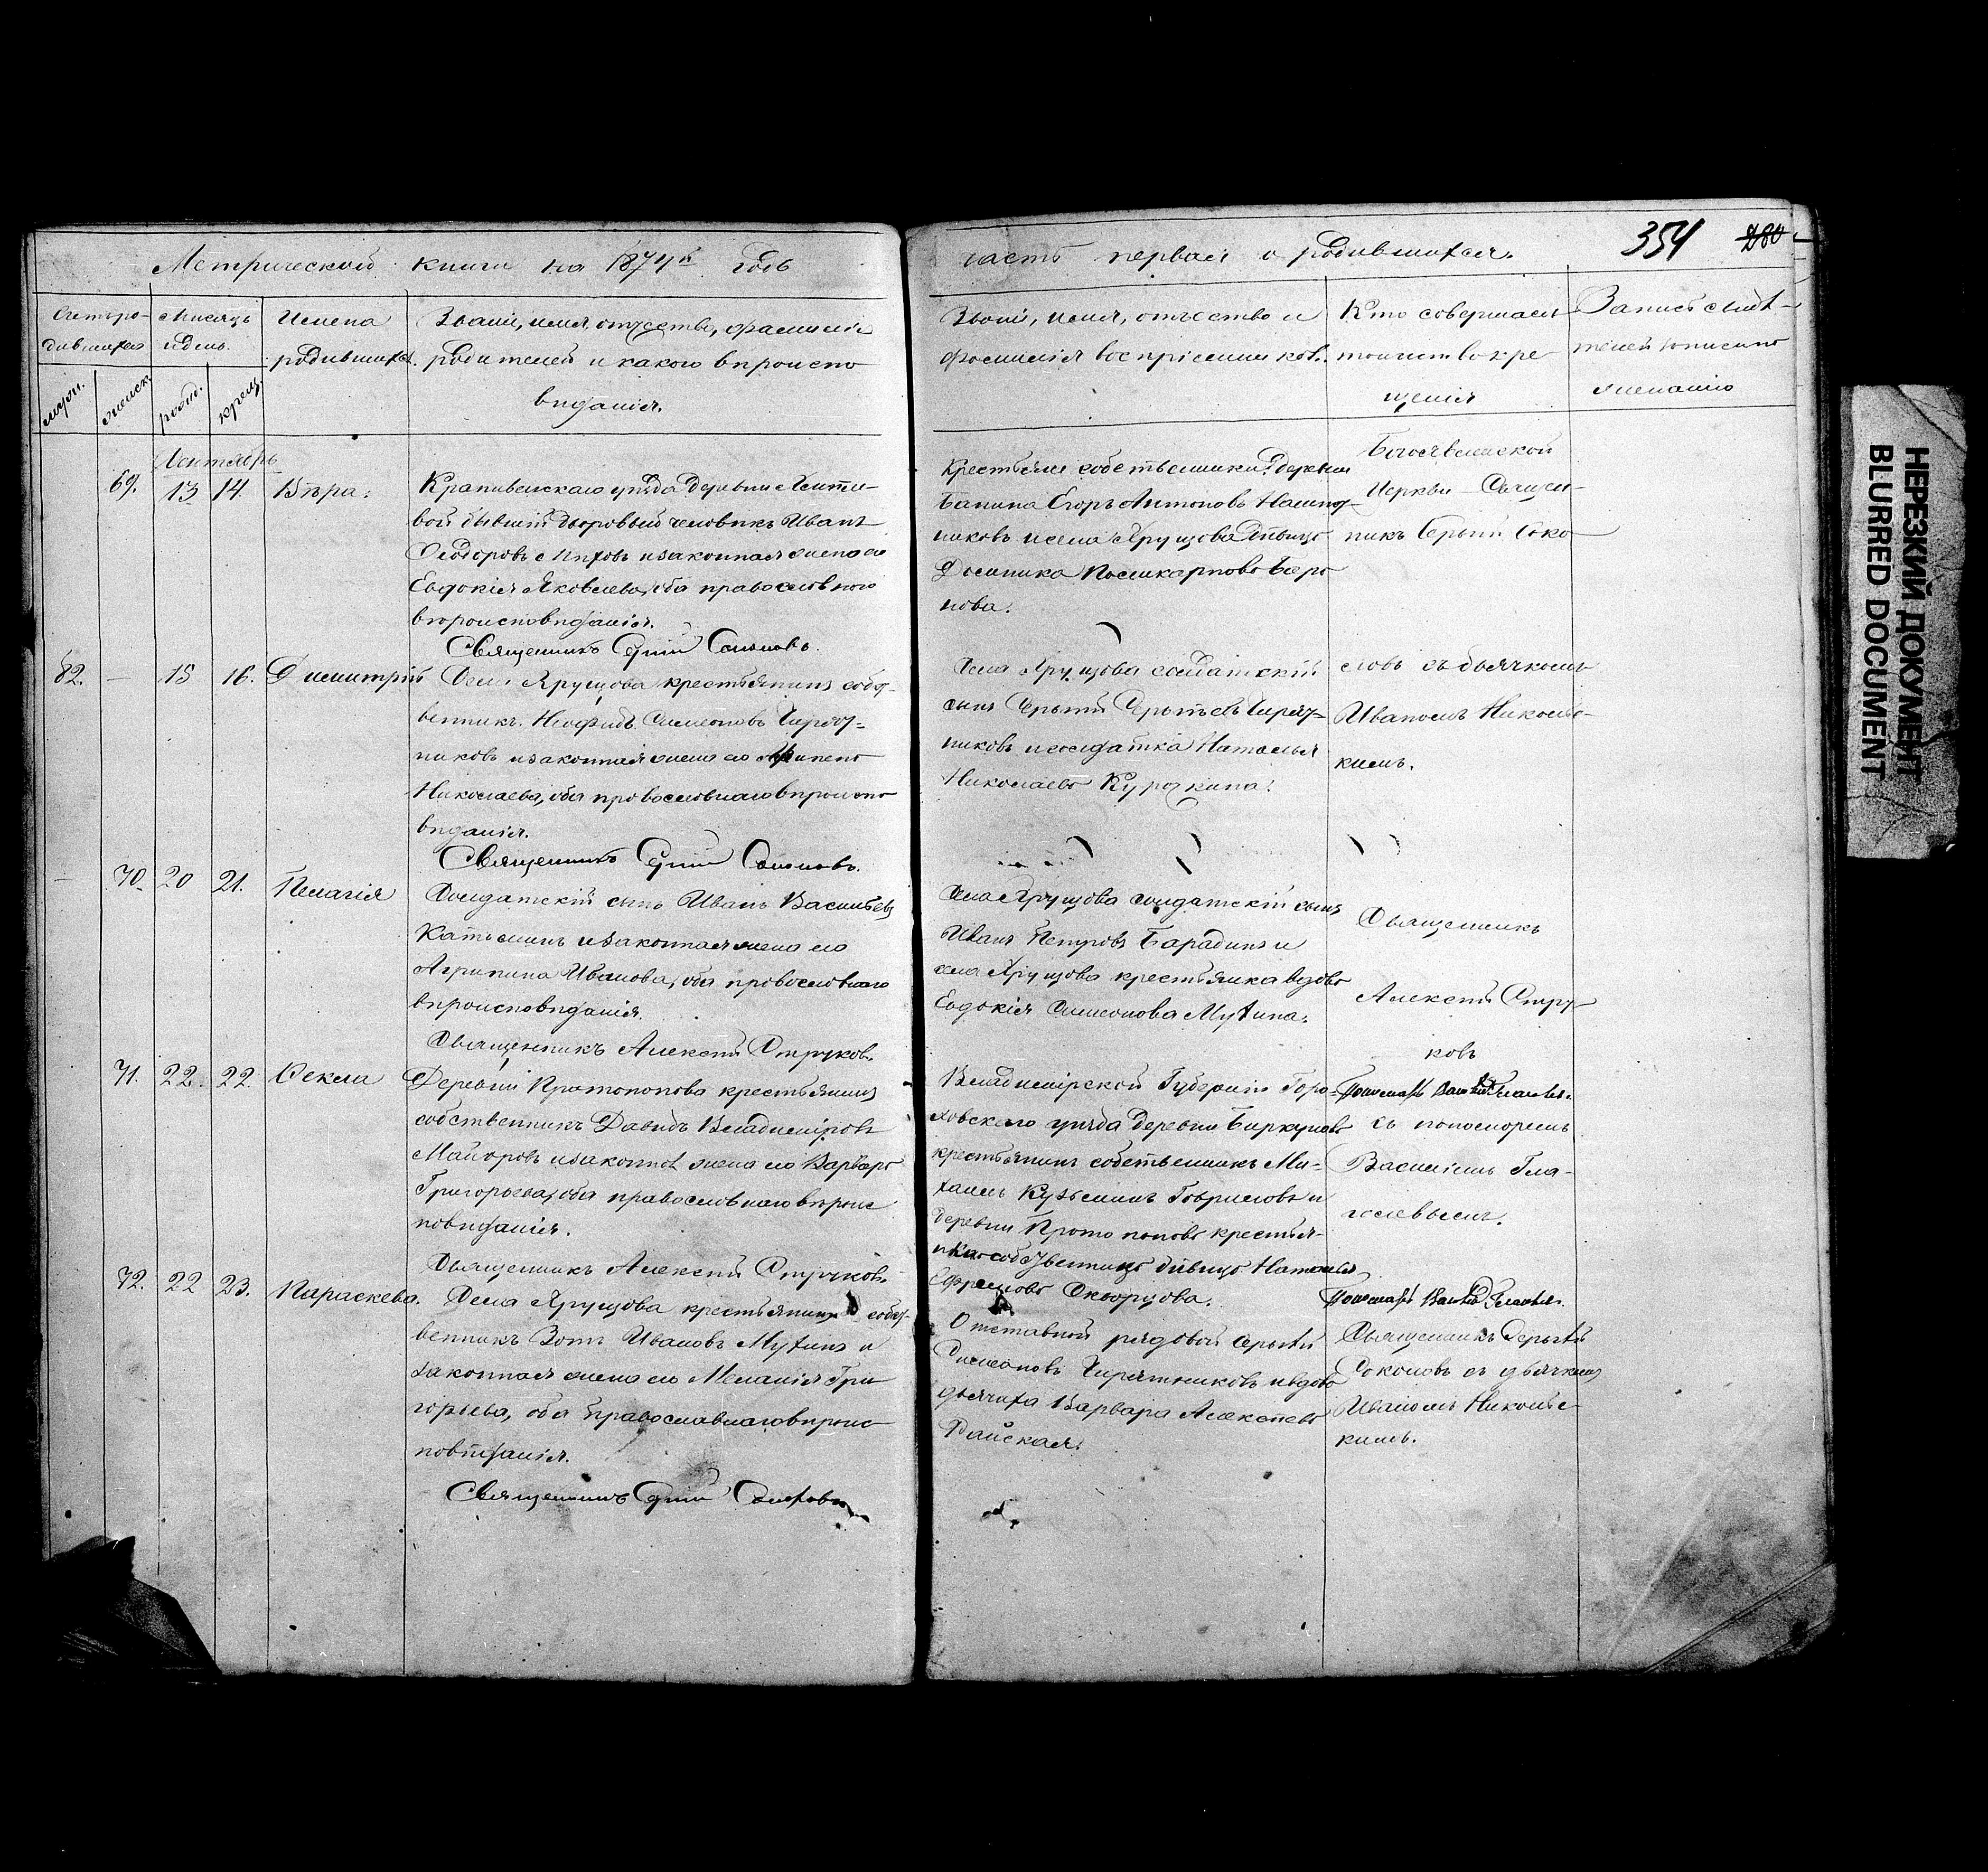 Метрической книги на 1874й годъ
часть первая о родившихся.
354
280
Счетъ ро-
дившихся
Мѣсяцъ
и день.
Имена
родившихся.
Званіе, имя, отчество, фамилія
родителей и какого вѣроиспо
вѣданія.
муж.
женск.
рожд.
крещ.
Званіе, имя, отчество и
фамилія воспріемниковъ.
Кто совершалъ
таинство кре
щенія
желанію
Сентябрь
69. 13 14. Вѣра.
Крапивенскаго уѣзда деревни
вой бывшій дворовый человѣкъ Иванъ
Ѳеодоровъ и законная жена его
Евдокія Яковлева, оба православнаго
вѣроисповѣданія.
Священникъ Сергій Соколовъ.
Крестьяне собственники: деревни
Банина Егоръ Антоновъ
никовъ и села Хрущова дѣвица
Домника Поликарпова
нова.
Богоявленской
Церкви Священ-
никъ Сергій Соко
82. — 15 16. Димитрій
Села Хрущова крестьянинъ собст-
венникъ Неофидъ Симеоновъ Чирят-
никовъ и законная жена его
Николаева, оба православнаго вѣроиспо
вѣданія.
Священникъ Сергій Соколовъ.
Села Хрущова солдатскій
сынъ Сергѣй Сергѣевъ Чирят-
никовъ и солдатка Наталья
Николаева Курочкина.
ловъ съ дьячкомъ
Иваномъ Николь-
кимъ.
— 70. 20 21. Пелагія
Солдатскій сынъ Иванъ Васильевъ
Катылинъ и законная жена его
Агрипина Иванова, оба православнаго
вѣроисповѣданія.
Священникъ Алексѣй Струковъ.
Села Хрущова солдатскій сынъ
Иванъ Петровъ Барадинъ и
села Хрущова крестьянка вдова
Евдокія Симеонова Мухина.
Священникъ
Алексѣй Стру-
ковъ
71. 22. 22. Ѳекла
Деревни Протопопова крестьянинъ
собственникъ Давидъ Владиміровъ
Майоровъ и законная жена его Варвара
Григорьева, оба православнаго вѣроис
повѣданія.
Священникъ Алексѣй Струковъ.
Владимірской Губерніи Горо-
ховскаго уѣзда деревни Биркунова
крестьянинъ собственникъ Ми-
хаилъ Кузьминъ Гавриловъ и
деревни Протопопова крестья-
нка собственница дѣвица Наталья
Ефремова Скворцова.
Пономарь
съ пономоремъ
Василіемъ Гла-
голевымъ.
72. 22 23. Параскева.
Села Хрущова крестьянинъ собст-
венникъ Зотъ Ивановъ Мухинъ и
законная жена его Меланія Гри
горьева, оба православнаго вѣроис
повѣданія.
Священникъ Сергій Соколовъ
Отставной рядовой Сергѣй
Симеоновъ Чирятниковъ и вдова
дьячиха Варвара Алексѣева
Райская.
Пономарь
Священникъ Сергѣй
Соколовъ съ дьячкомъ
Иваномъ Николь-
кимъ.
НЕРЕЗКИЙ ДОКУМЕНТ
BLURRED DOCUMENT